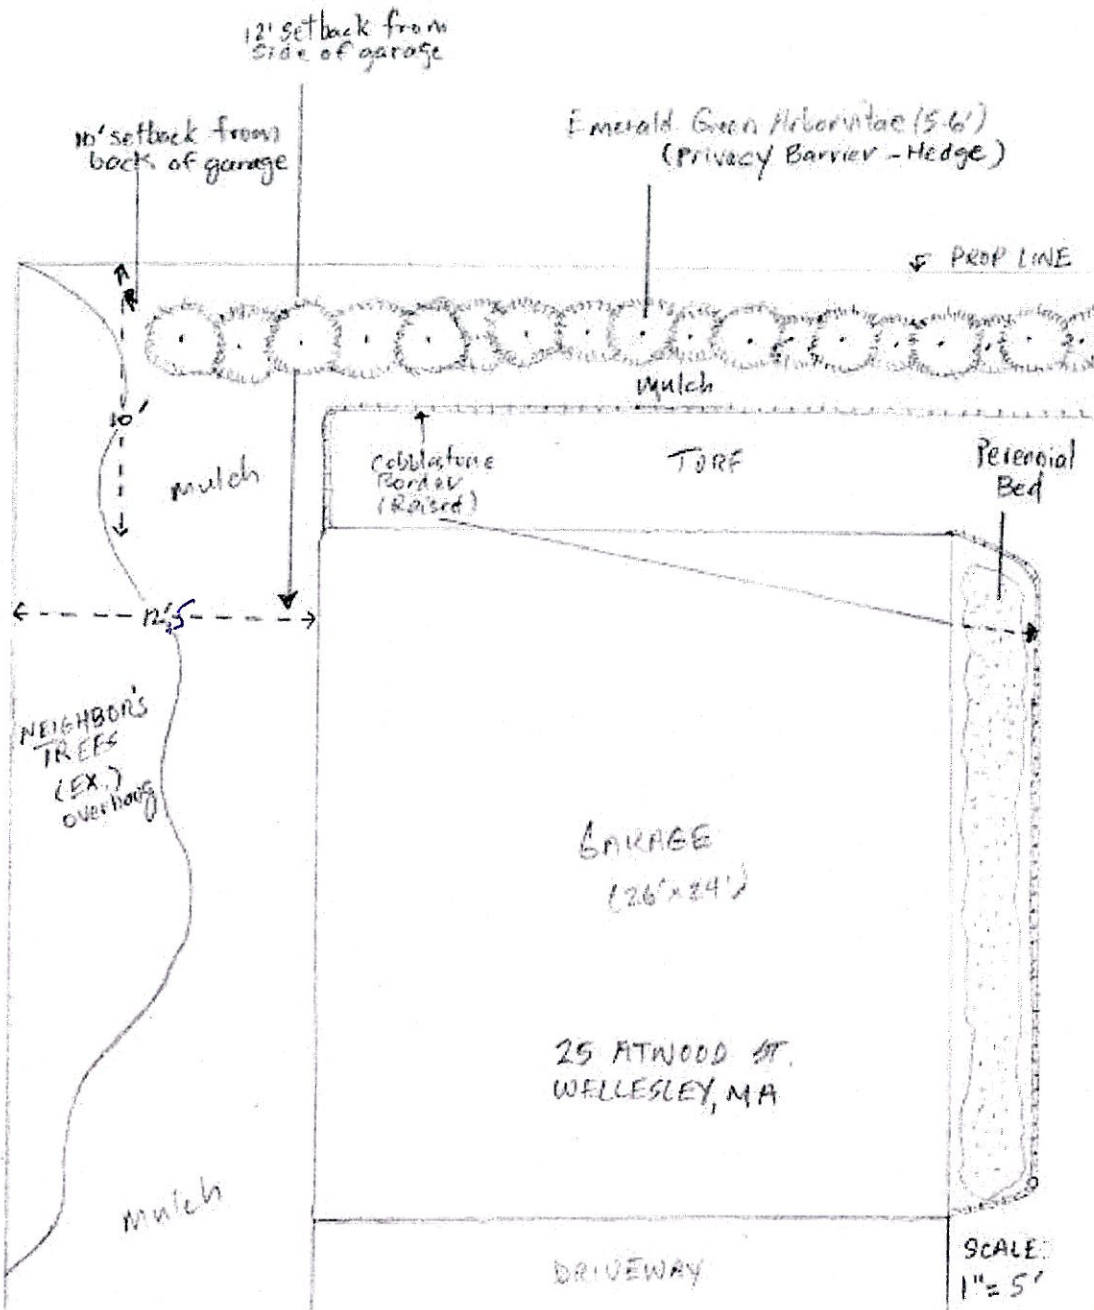 12' setback from
side of garage
10' setback from
back of garage
Emerald Green Arborvitae (5-6')
(Privacy Barrier - Hedge)
PROP LINE
Mulch
10'
Mulch
Cobblestone
Border
(Raised)
TURF
Perennial
Bed
12'.5
NEIGHBOR'S
TREES
(EX.)
overhang
GARAGE
(26' x 24')
25 ATWOOD ST.
WELLESLEY, MA
Mulch
DRIVEWAY
SCALE:
1" = 5'